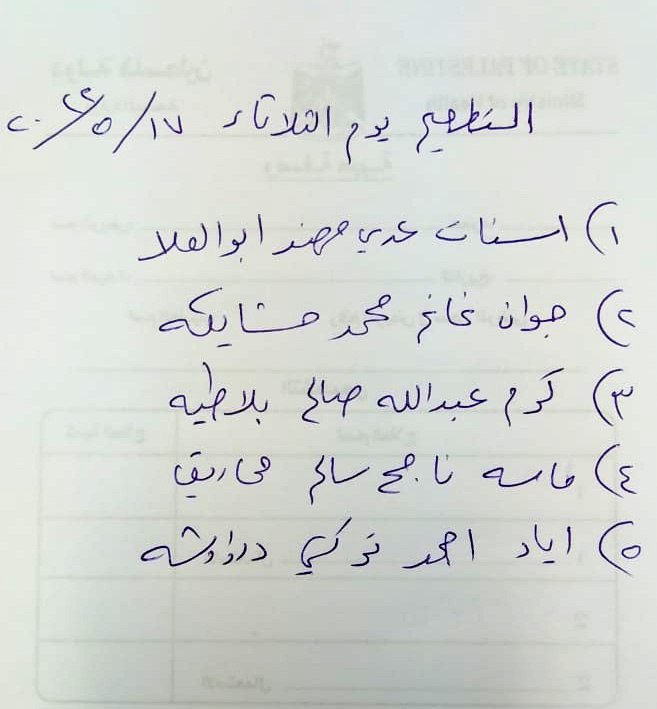 التطعيم يوم الثلاثاء ١٧/٥/٢٠٢٢
١) اسنات عدي مهند ابو العلا
٢) جوان غانم محمد مشايكه
٣) كرم عبدالله صالح بلاطيه
٤) ماسه ناجح سالم محاريق
٥) اياد احمد تركي دراوشه